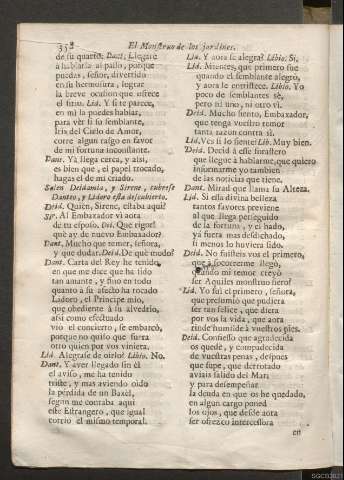 358
El Monstruo de los jardines.
de su quarto. Dant. Llegaré
à hablarla al passo, porque
puedas, señor, divertido
en su hermosura, lograr
la breve ocasion que ofrece
el sitio. Lid. Y si te parece,
en mi la puedes hablar,
para vèr si su semblante,
Iris del Cielo de Amor,
corre algun rasgo en favor
de mi fortuna inconstante.
Dant. Yà llega cerca, y assi,
es bien que, el papel trocado,
hagas el de mi criado.
Salen Deidamia, y Sirene, cubrese
Danteo, y Lidoro està descubierto.
Deid. Quien, Sirene, estaba aqui?
Syr. Al Embaxador vì aora
de tu esposo. Dei. Que rigor!
què ay de nuevo Embaxador?
Dant. Mucho que temer, señora,
y que dudar. Deid. De què modo?
Dant. Carta del Rey he tenido,
en que me dice que ha sido
tan amante, y fino en todo
quanto à su afecto ha tocado
Lidoro, el Principe mio,
que obediente à su alvedrio,
assi como efectuado
viò el concierto, se embarcò,
porque no quiso que fuera
otro quien por vos viniera.
Lid. Alegrase de oirlo? Libio. No.
Dant. Y aver llegado sin èl
el aviso, me ha tenido
triste, y mas aviendo oido
la pèrdida de un Baxèl,
segun me contaba aqui
este Estrangero, que igual
corriò el mismo temporal.
Lid. Y aora se alegra? Libio. Si.
Lid. Mientes, que primero fue
quando el semblante alegrò,
y aora le entristece. Libio. Yo
poco de semblantes sè,
pero ni uno, ni otro vì.
Deid. Mucho siento, Embaxador,
que tenga vuestro temor
tanta razon contra sì.
Lid. Ves si lo siente? Lib. Muy bien.
Deid. Decid à esse forastero
que llegue à hablarme, que quiero
informarme yo tambien
de las noticias que tiene.
Dant. Mirad que llama su Alteza.
Lid. Si essa divina belleza
tantos favores previene
al que llega perseguido
de la fortuna, y el hado,
yà fuera mas desdichado,
si menos lo huviera sido.
Deid. No fuisteis vos el primero,
que à socorrerme llegò,
quando mi temor creyò
ser Aquiles monstruo fiero?
Lid. Yo fui el primero, señora,
que presumiò que pudiera
ser tan felice, que diera
por vos la vida, que aora
rinde humilde à vuestros pies.
Deid. Confiesso que agradecida
os quedè, y compadecida
de vuestras penas, despues
que supe, que derrotado
aviais salido del Mar;
y para desempeñar
la deuda en que os he quedado,
en algun cargo poned
los ojos, que desde aora
ser ofrezco intercessora
en